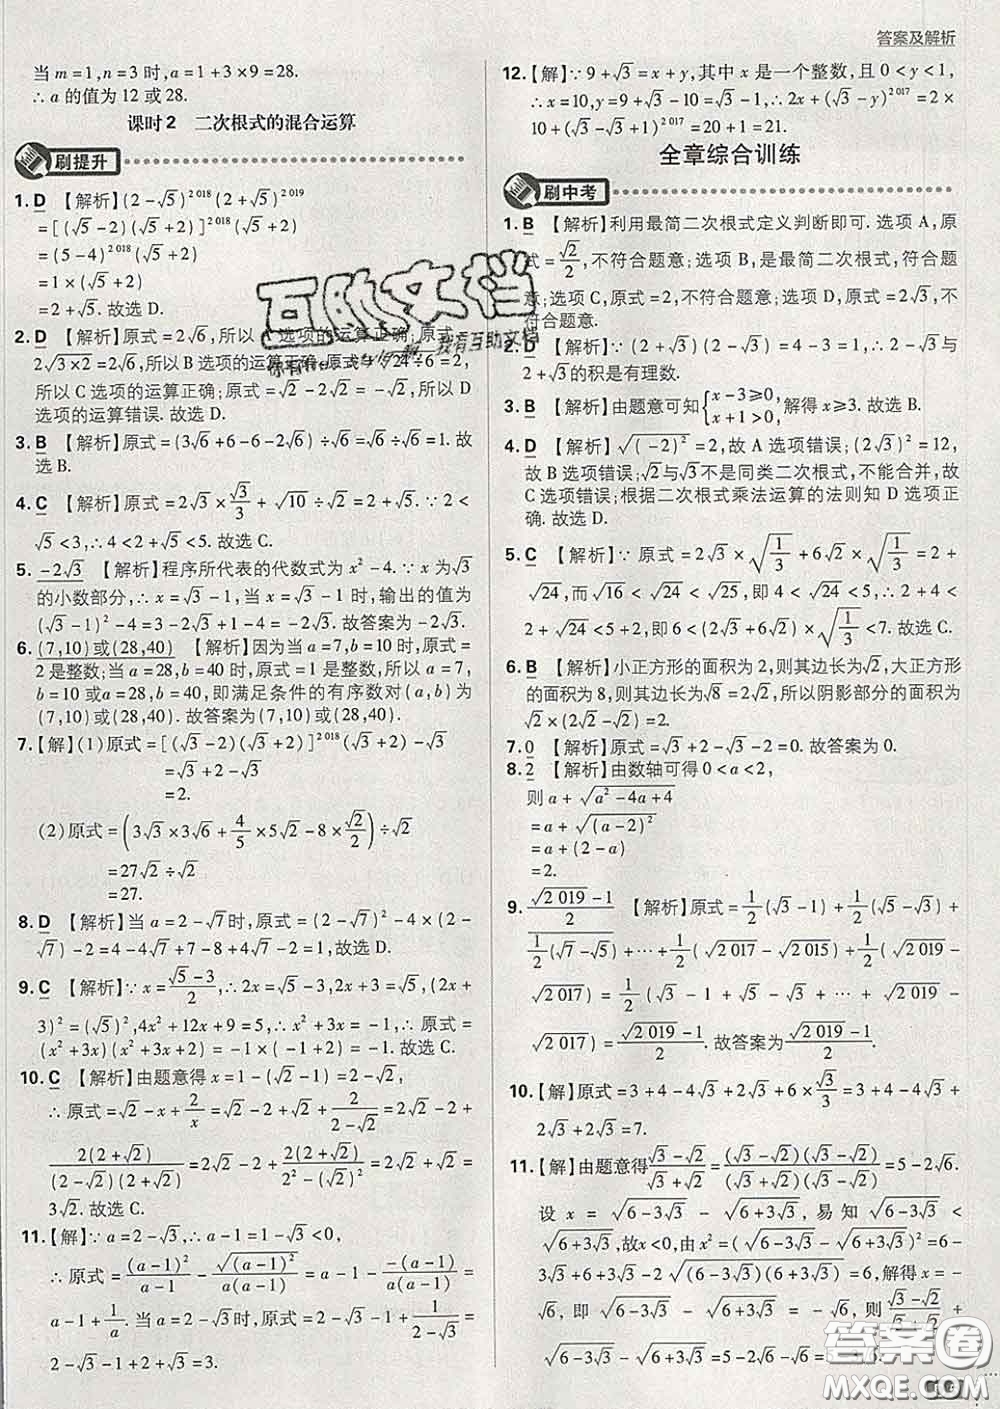 答案及解析
当 m=1,n=3 时,a=1+3×9=28.
∴ a 的值为 12 或 28.
课时2 二次根式的混合运算
刷提升
1. D 【解析】(2-√5)^2 018 (2+√5)^2 019
=[(√5-2)(√5+2)]^2 018 (√5+2)
=(5-4)^2 018 (√5+2)
=1×(√5+2)
=2+√5. 故选 D.
2. D 【解析】原式=2√6,所以 A 选项的运算正确;原式=
2√(3×2)=2√6,所以 B 选项的运算正确;原式=√24÷6=2,
所以 C 选项的运算正确;原式=√2-2√2=-√2,所以 D
选项的运算错误. 故选 D.
3. B 【解析】原式=(3√6+6-6-2√6)÷√6=√6÷√6=1. 故
选 B.
4. C 【解析】原式=2√3×√3/3+√10÷√2=2+√5. ∵2<
√5<3,∴4<2+√5<5. 故选 C.
5. -2√3 【解析】程序所代表的代数式为 x²-4. ∵x 为√3
的小数部分,∴x=√3-1,当 x=√3-1 时,输出的值为
(√3-1)²-4=3-2√3+1-4=-2√3. 故答案为-2√3.
6. (7,10)或(28,40) 【解析】因为当 a=7,b=10 时,原式=
2 是整数;当 a=28,b=40 时,原式=1 是整数,所以 a=7,
b=10 或 a=28,b=40,即满足条件的有序数对(a,b)为
(7,10)或(28,40). 故答案为(7,10)或(28,40).
7.【解】(1)原式=[(√3-2)(√3+2)]^2 018 (√3+2)-√3
=√3+2-√3
=2.
(2)原式=(3√3×3√6+4/5×5√2-8×√2/2)÷√2
=27√2÷√2
=27.
8. D 【解析】当 a=2-√7时,原式=(2-√7)²-4×(2-
√7)-2=4-4√7+7-8+4√7-2=1,故选 D.
9. C 【解析】∵x=(√5-3)/2,∴2x=√5-3,2x+3=√5,(2x+
3)²=(√5)²,4x²+12x+9=5,∴x²+3x=-1,∴原式=
(x²+3x)(x²+3x+2)=-1×(-1+2)=-1. 故选 C.
10. C 【解析】由题意得 x=1-(√2-1)=2-√2,
∴原式=√2-x+2/x=√2-2+√2+2/(2-√2)=2√2-2+
2(2+√2)/((2-√2)(2+√2))=2√2-2+2(2+√2)/(2²-(√2)²)=2√2-2+2+√2=
3√2. 故选 C.
11.【解】∵a=2-√3,∴a-1=1-√3<0,
∴原式=(a-1)²/(a-1)-√((a-1)²)/(a(a-1))=a-1--(a-1)/(a(a-1))=
a-1+1/a. 当 a=2-√3时,原式=2-√3-1+1/(2-√3)=
2-√3-1+2+√3=3.
12.【解】∵9+√3=x+y,其中 x 是一个整数,且 0<y<1,
∴x=10,y=9+√3-10=√3-1,∴2x+(√3-y)^2 017=2×
10+(√3-√3+1)^2 017=20+1=21.
全章综合训练
刷中考
1. B 【解析】利用最简二次根式定义判断即可. 选项 A,原
式=√2/2,不符合题意;选项 B,是最简二次根式,符合题
意;选项 C,原式=2,不符合题意;选项 D,原式=2√3,不
符合题意.
2. D 【解析】∵(2+√3)(2-√3)=4-3=1,∴2-√3与
2+√3的积是有理数.
3. B 【解析】由题意可知{x-3≥0, x+1>0,解得 x≥3. 故选 B.
4. D 【解析】√((-2)²)=2,故 A 选项错误;(2√3)²=12,
故 B 选项错误;√2与√3不是同类二次根式,不能合并,故
C 选项错误;根据二次根式乘法运算的法则知 D 选项正
确. 故选 D.
5. C 【解析】∵原式=2√3×√(1/3)+6√2×√(1/3)=2+
√24,而√16<√24<√25,即 4<√24<5,∴2+4<
2+√24<5+2,即 6<(2√3+6√2)×√(1/3)<7. 故选 C.
6. B 【解析】小正方形的面积为 2,则其边长为√2,大正方
形的面积为 8,则其边长为√8=2√2,所以阴影部分的面积为
√2×(2√2-√2)=2.
7. 0 【解析】原式=√3+2-√3-2=0. 故答案为 0.
8. 2 【解析】由数轴可得 0<a<2,
则 a+√(a²-4a+4)
=a+√((a-2)²)
=a+(2-a)
=2.
9. (√2 019-1)/2 【解析】原式=1/2(√3-1)+1/2(√5-√3)+
1/2(√7-√5)+…+1/2(√2 017-√2 015)+1/2(√2 019-
√2 017)=1/2(√3-1+√5-√3+…+√2 019-
√2 017)=(√2 019-1)/2. 故答案为(√2 019-1)/2.
10.【解】原式=3+4-4√3+2√3+6×√3/3=3+4-4√3+
2√3+2√3=7.
11.【解】由题意得(√3-√2)/(√3+√2)=(√3-√2)(√3-√2)/((√3+√2)(√3-√2))=5-2√6.
设 x=√(6-3√3)-√(6+3√3),易知√(6-3√3)<
√(6+3√3),故x<0,由 x²=(√(6-3√3)-√(6+3√3))²=6-
3√3+6+3√3-2√((6-3√3)(6+3√3))=6,解得 x=-
√6,即 √(6-3√3)-√(6+3√3)=-√6,则(√3-√2)/(√3+√2)+
√(6-3√3)-√(6+3√3)=5-2√6-√6=5-3√6.
互助文档
我有互助文档
答案圈
MXQE.COM